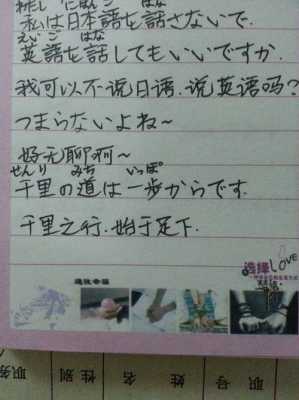 わたし にほんご はな
私は日本語を話さないで.
えいご はな
英語を話してもいいですか.
我可以不说日语.说英语吗?
つまらないよね~
好无聊啊~
せんり みち いっぽ
千里の道は一歩からです.
千里之行.始于足下.
选择LOVE
职务
性别
姓名
职号